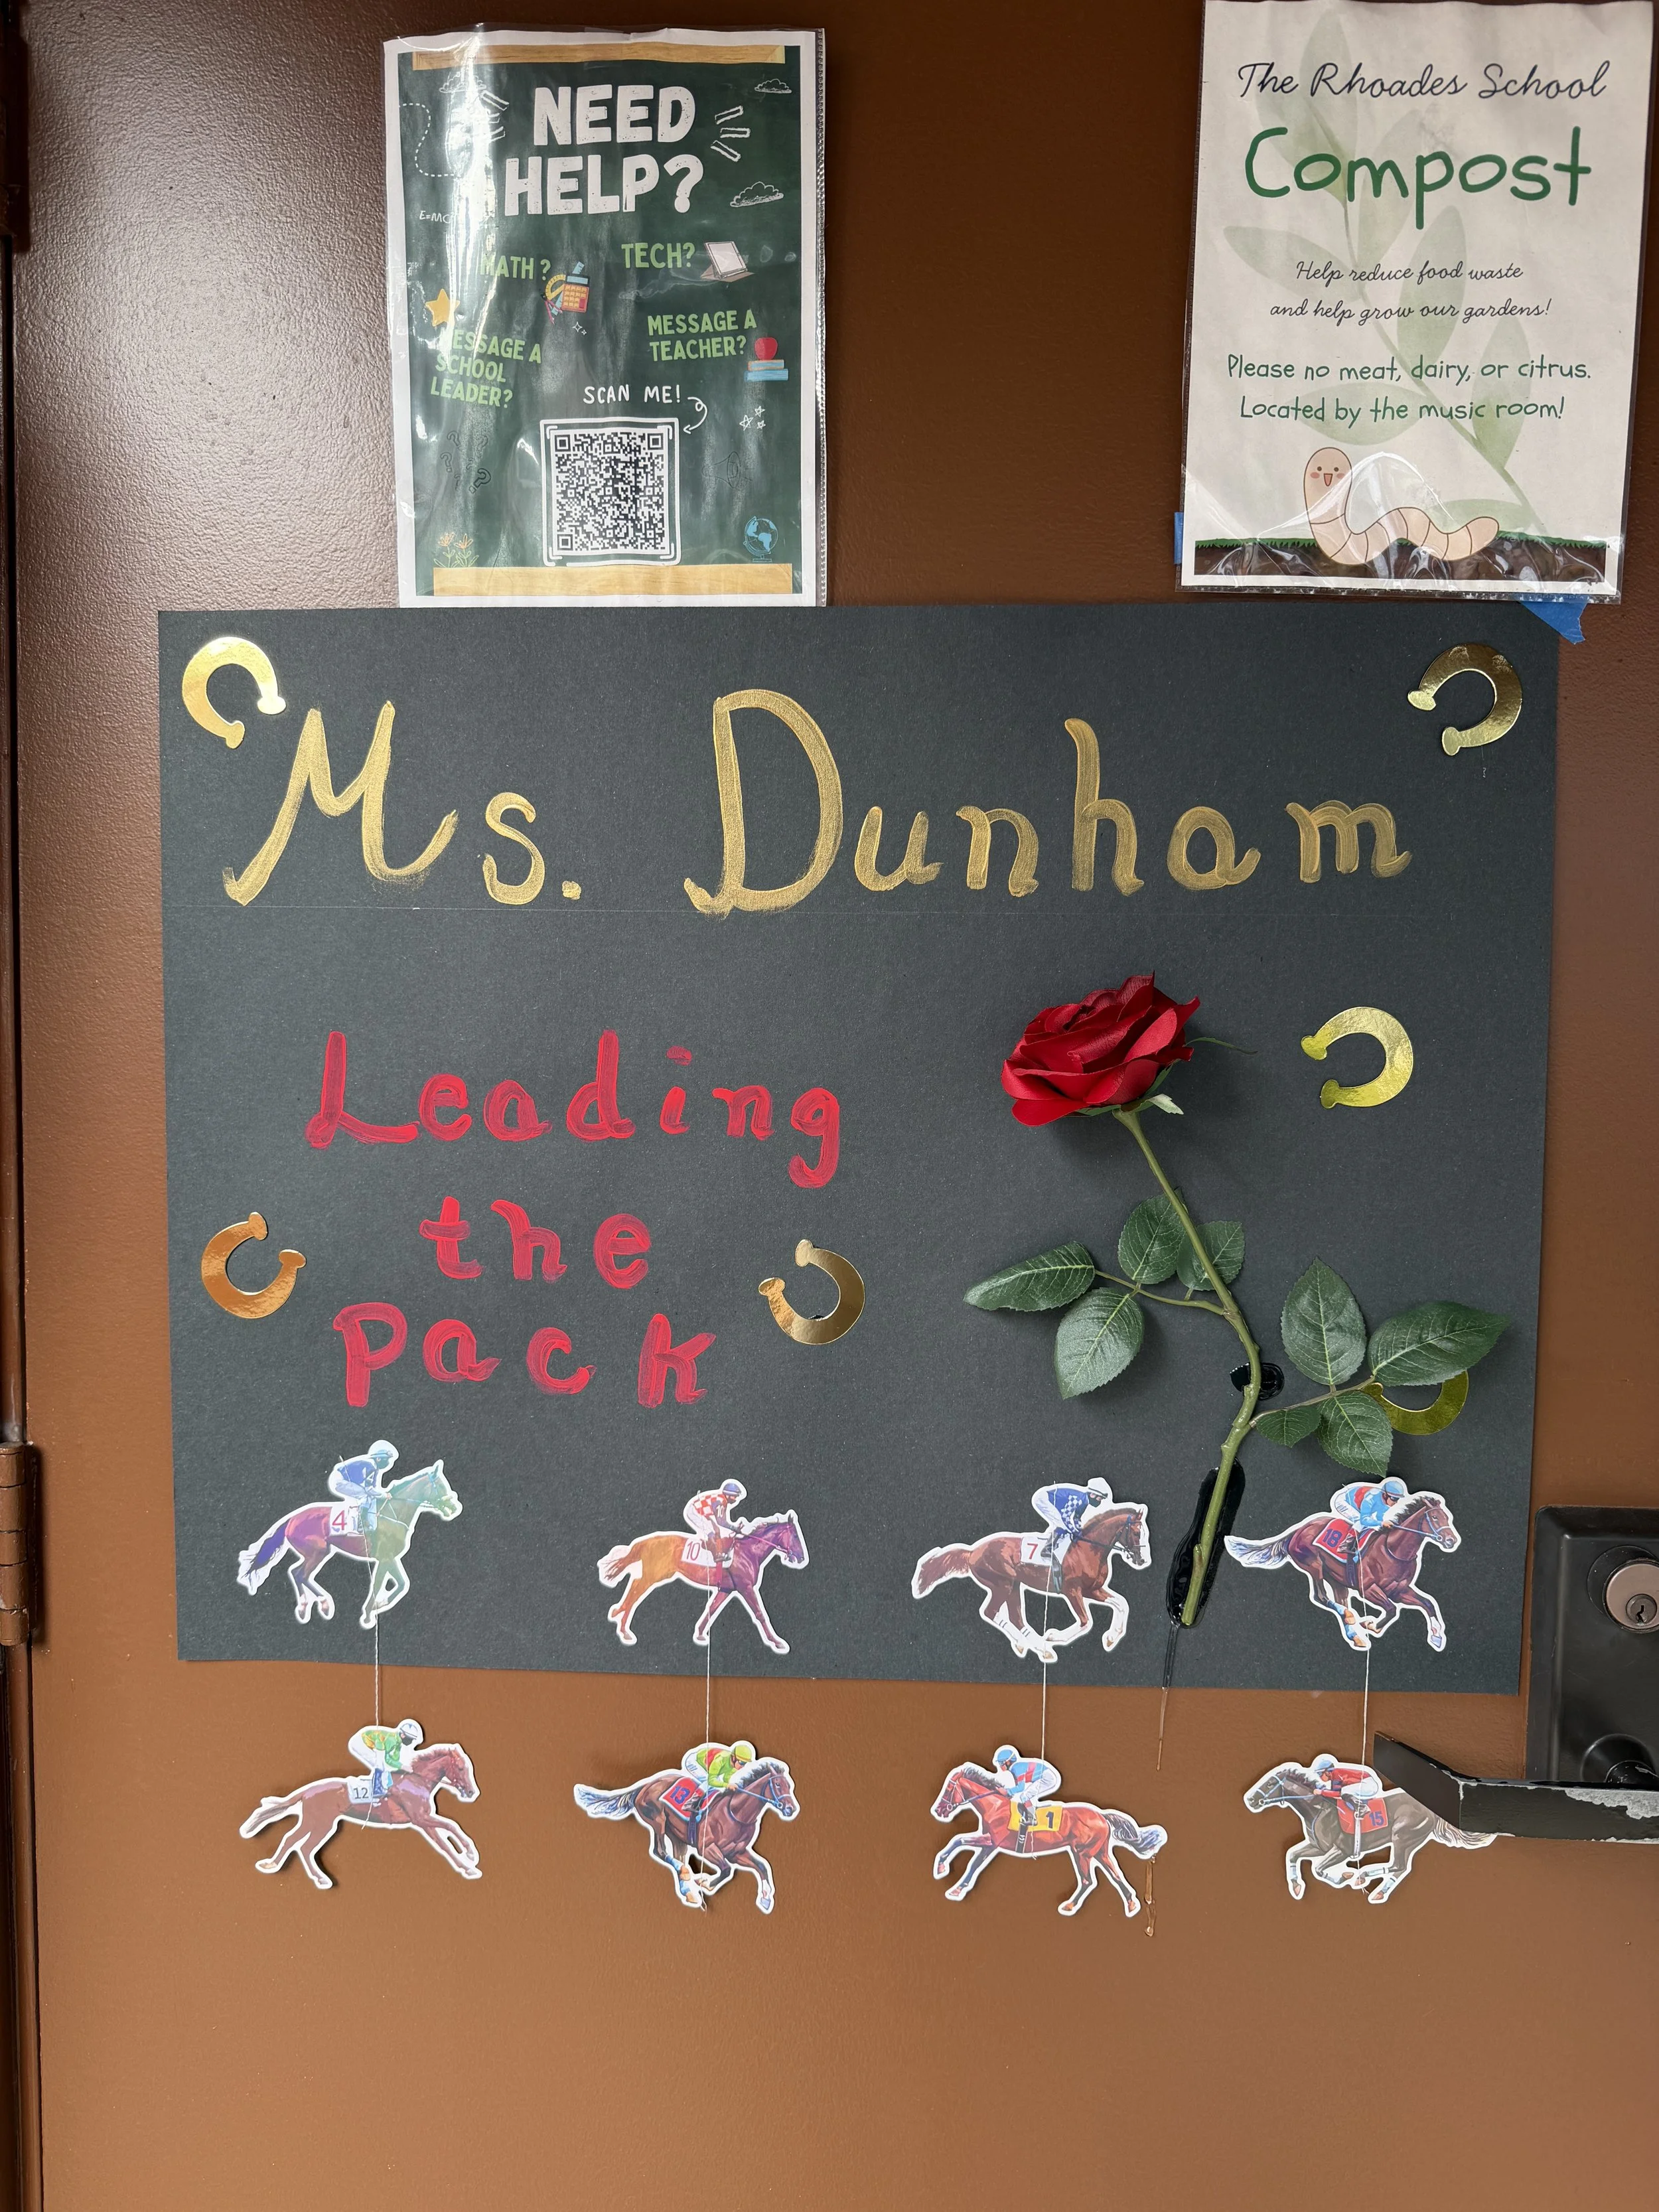 NEED
HELP?
E=MC
MATH?
TECH?
MESSAGE A
SCHOOL
LEADER?
MESSAGE A
TEACHER?
SCAN ME!
The Rhoades School
Compost
Help reduce food waste
and help grow our gardens!
Please no meat, dairy, or citrus.
Located by the music room!
Ms. Dunham
Leading
the
Pack
4
10
7
18
12
13
1
15